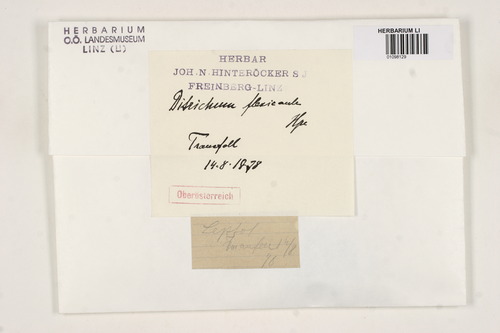 HERBARIUM
O.Ö. LANDESMUSEUM
LINZ (LI)
HERBARIUM LI
HERBAR
JOH. N. HINTERÖCKER S J
FREINBERG-LINZ
Ditrichum flexicaule
Hpe
Traunfall
14.8.1878
Oberösterreich